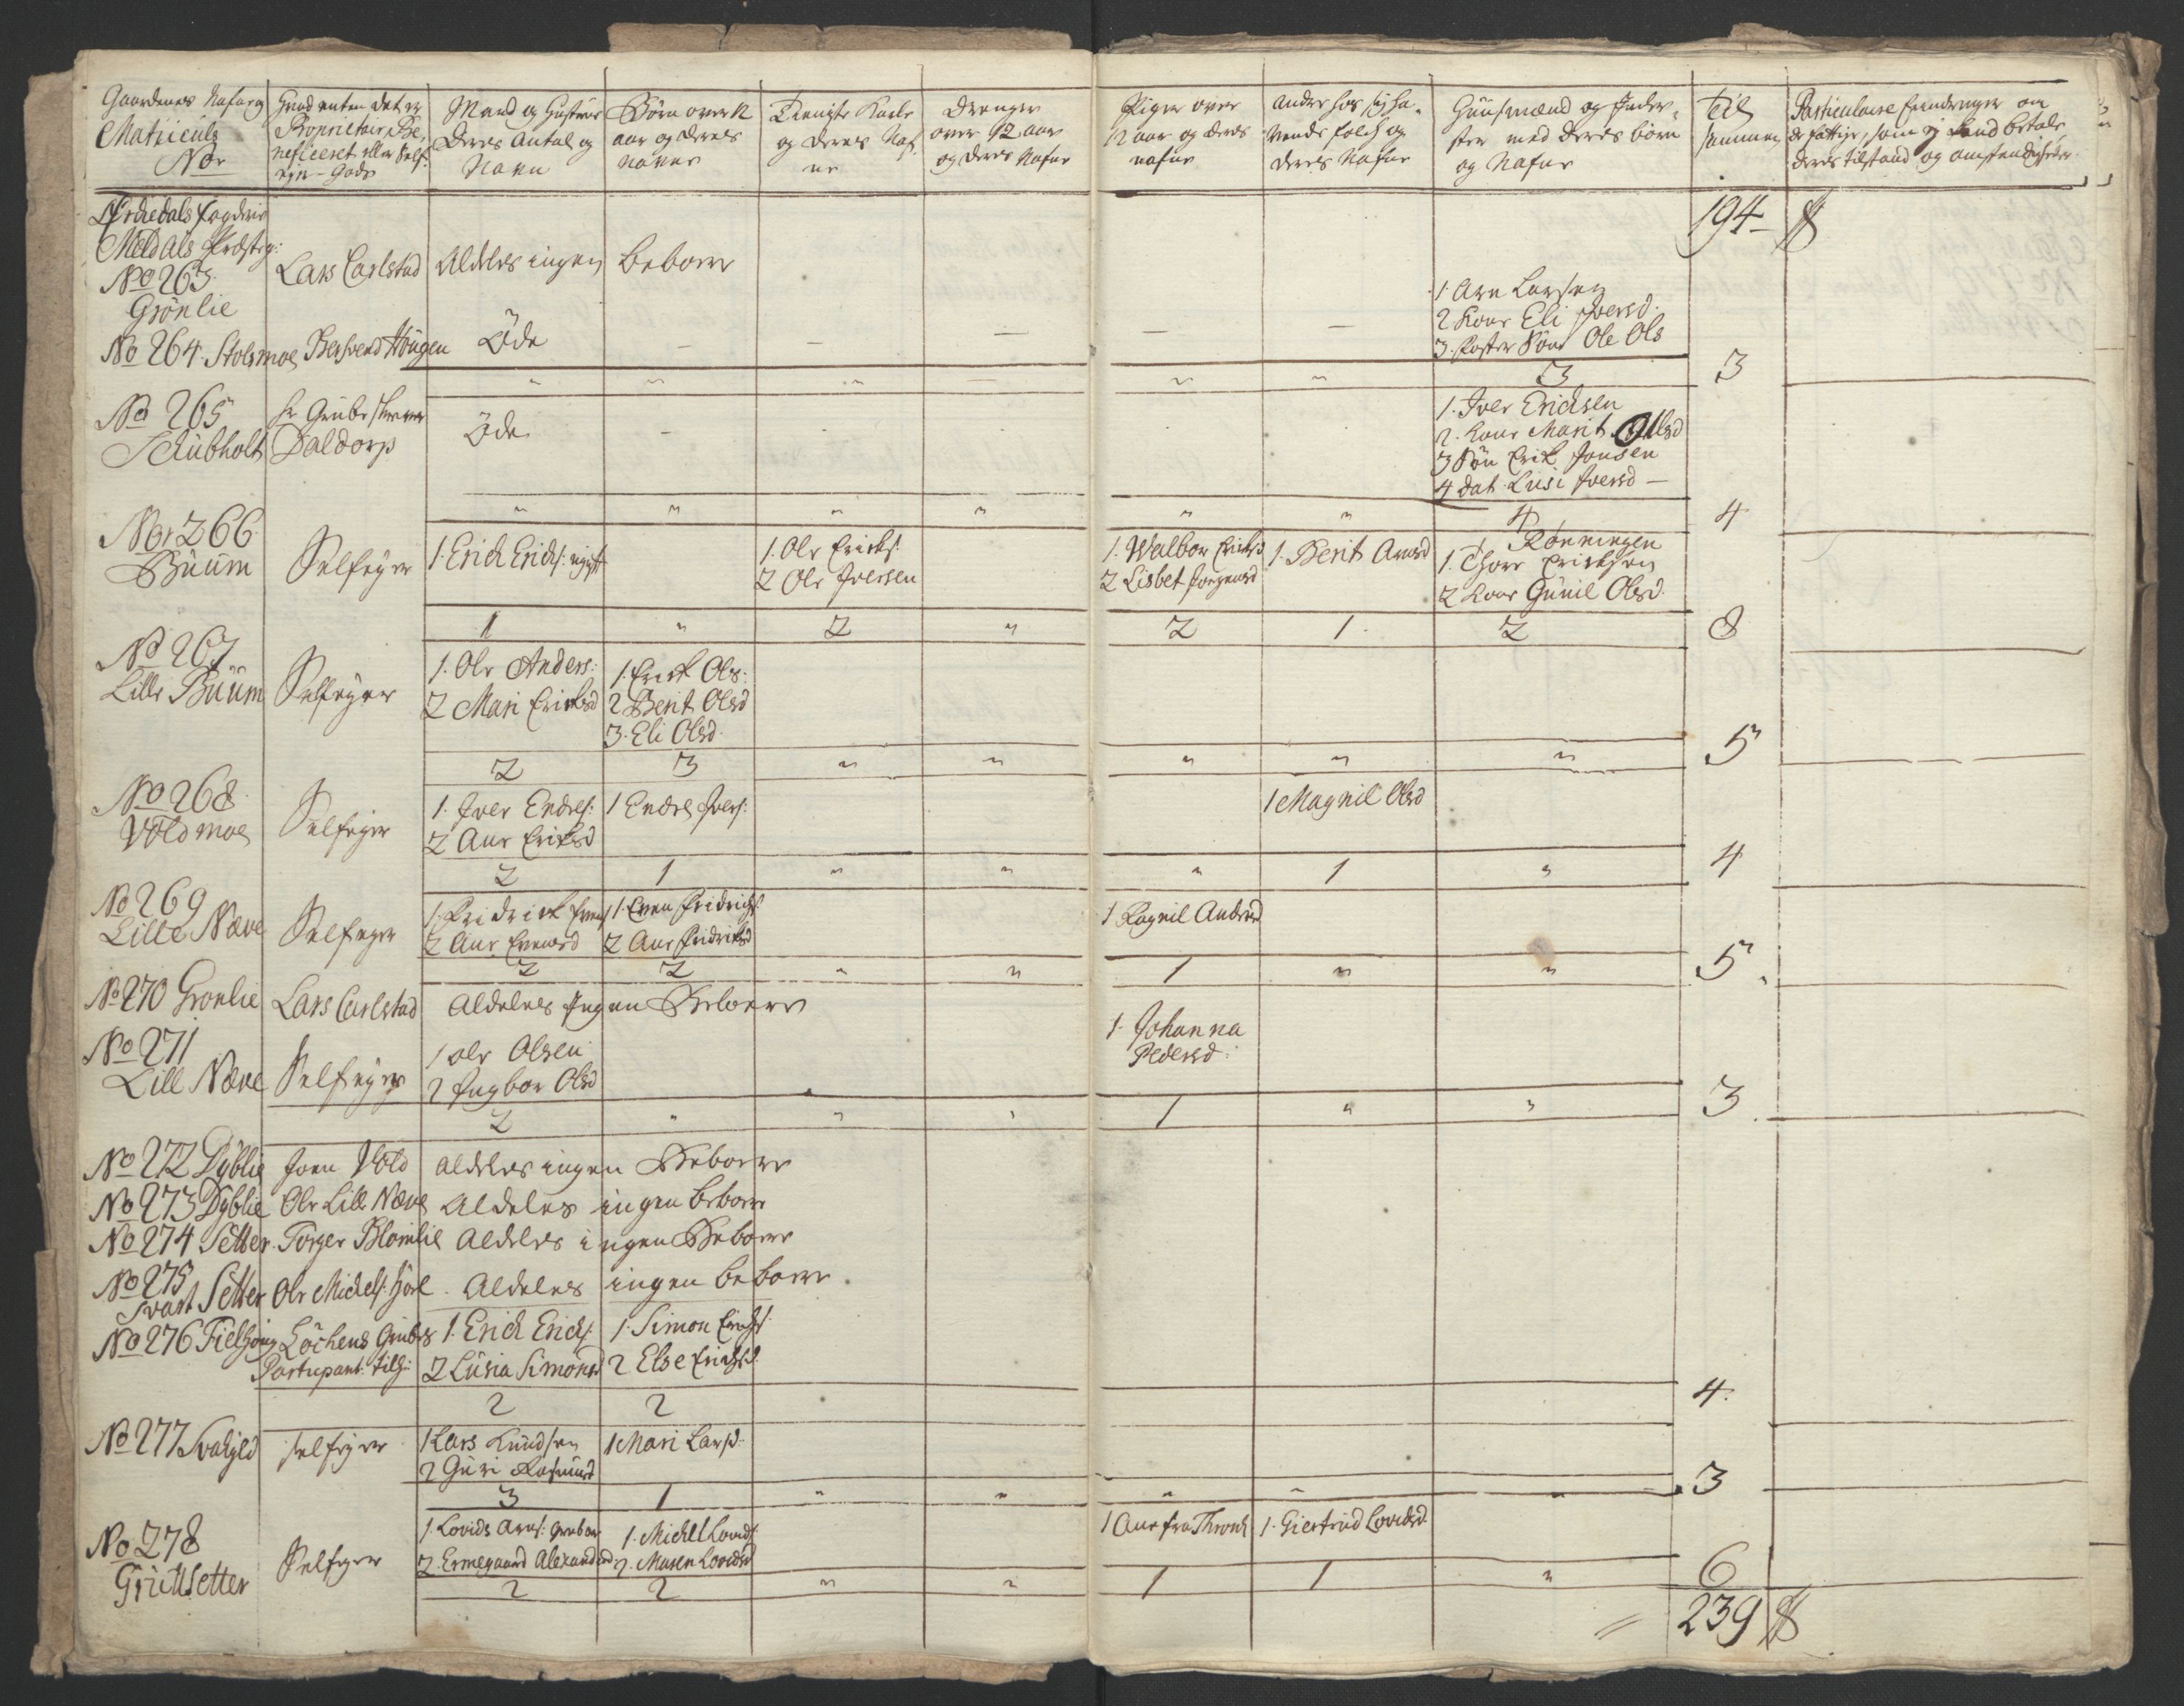 Gaardenes Nafn og
Matriculs
No
Hvad enten det er
Proprietair, Be-
neficeret eller Self-
eyer-Gods
Mand og Hustrues
Deres Antal og
Navn
Børn over 12
aar og deres
naune
Tieniste Karle
og deres Naf-
ne
Drenger
over 12 aar
og deres Nafne
Piger over
12 aar og deres
nafne
Andre hos sig ha-
vende folch og
deres Nafne
Huusmænd og Inder-
ster med deres børn
og Nafne
Til
sammen
Particulaire om
de fattige, som ej kand betale
deres tilstand og omstendigheder.
Ørchedals fogderie
Meldals Præsteg:
194
No 263
Grönlie
Lars Carlstad
Aldeles ingen beboere
No 264 Stolsmoe
Bersvend Haugen
Öde
1 Arn Larsen
2 Kone Eli Jversd.
3. foster Sön Ole Ols
3
3
No 265
Schubholt
hr Grubeskriver
Daldorp
Öde
1. Jver Erichsen
2. Kone Marit Olsd
3 Søn Erik Jonsen
4 dat Lusi Jversd
4
4
Nor 266
Büüm
Selfeyer
1. Erich Erichs: ugift
1. Ole Erichs:
2 Ole Jversen
1. Walbor Ericksd
2 Lisbet Jorgensd
1. Berit Arnsd
Rønningen
1. Thore Erichsen
2 Kone Gunil Olsd.
1 " 2 " 2 1. 2
8
No 267
Lille Büüm
Selfeyer
1. Ole Anders:
2 Mari Ericksd
1. Erick Ols:
2 Berit Olsd
3. Eli Olsd
2 3 " " " " "
5
No 268
Voldmoe
Selfeyer
1. Jver Endres:
2 Ane Eriksd
1 Endre Jvers:
1 Magnil Olsd
2 1 " " " 1 "
4
No 269
Lille Næve
Selfeyer
1. Fridrick Evens
2 Ane Evensd
1. Even Fridrichs:
2 Ane Fridriksd
1 Ragnil Andersd
2 2 " " 1 " "
5.
No 270 Gronlie
Lars Carlstad
Aldeles Ingen Beboere
No 271
Lill Næve
Selfeyer
1 ole Olsen
2 Ingbor Olsd
1. Johanna
Pedersd:
2 " " " 1 " "
3
No 272 Dyblie
Joen Vold
aldeles ingen Beboere
No 273 Dyblie
Ole Lill Næve
Aldeles ingen beboere
No 274 Setter
Torger Blomlie
Aldeles ingen Beboere
No 275
Svart Setter
Ole Michels: Hoel
Aldeles ingen beboere.
No 276 Fielhoug
Löchens Grubes
Partisipant: tilh:
1. Erich Erichs:
2 Lusia Simonsd
1. Simon Erichs:
2 Else Erichsd.
2 2
4.
No 277 Svahjeld
selfeyer
1 Lars Knudsen
2 Guri Rasmusd
1 Mari Larsd.
3 1 " " " " "
3
No 278
Griltsetter
Selfeyer
1. Lovids Arns:
2. Ermegaard Alexandersd
1. Michel Lovids:
2. Maren Lovidsd
1 Ane fra Thronh
1. Giertrud Lovidsd
2 2 " " 1 1 "
6
239